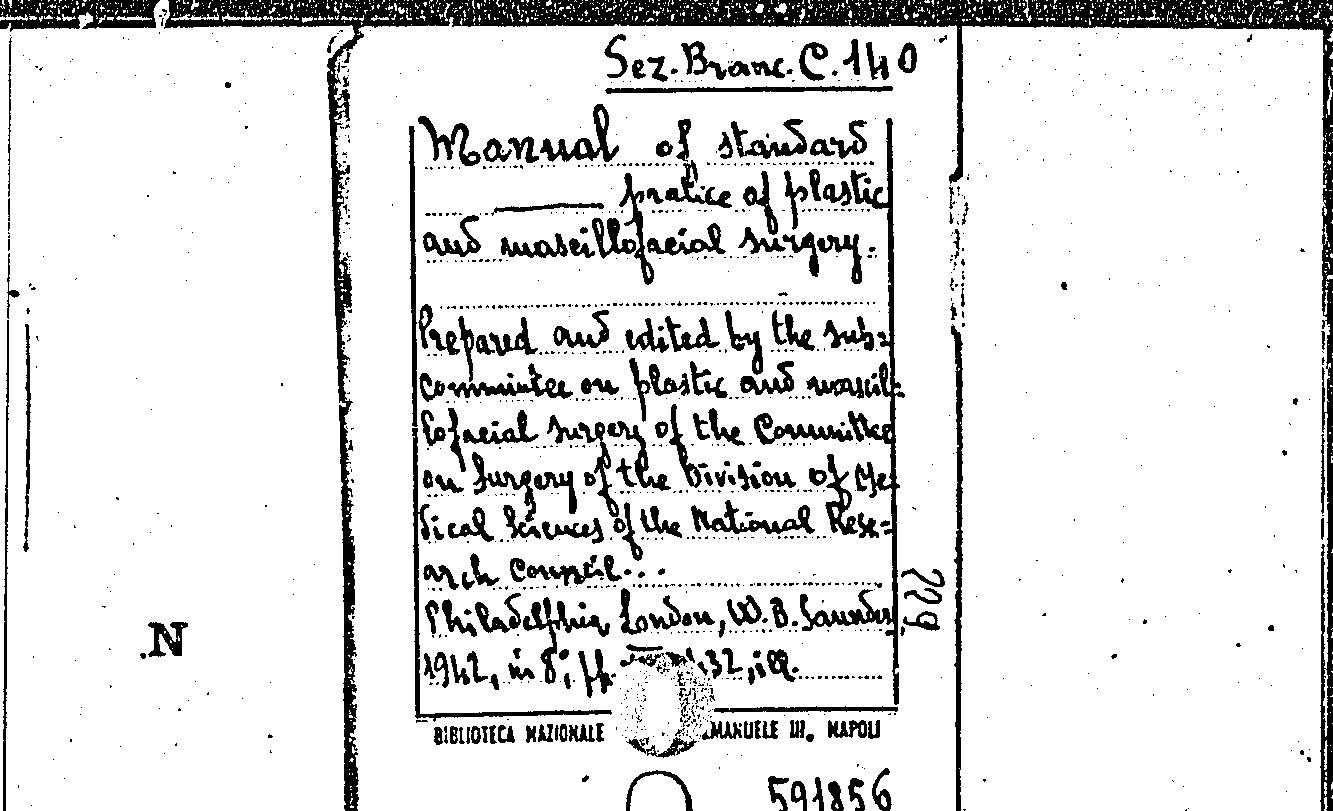 Sez. Branc. C. 140
Manual of standard
pratice of plastic
and mascillofacial surgery.
Prepared and edited by the sub=
committee on plastic and mascil=
lofacial surgery of the Committee
on Surgery of the Division of Me=
dical Sciences of the National Rese=
arch Council...
Philadelphia London, W. B. Saunders
1942, in 8°, pp. 432, ill.
229
.N
BIBLIOTECA NAZIONALE EMANUELE III. NAPOLI
591856